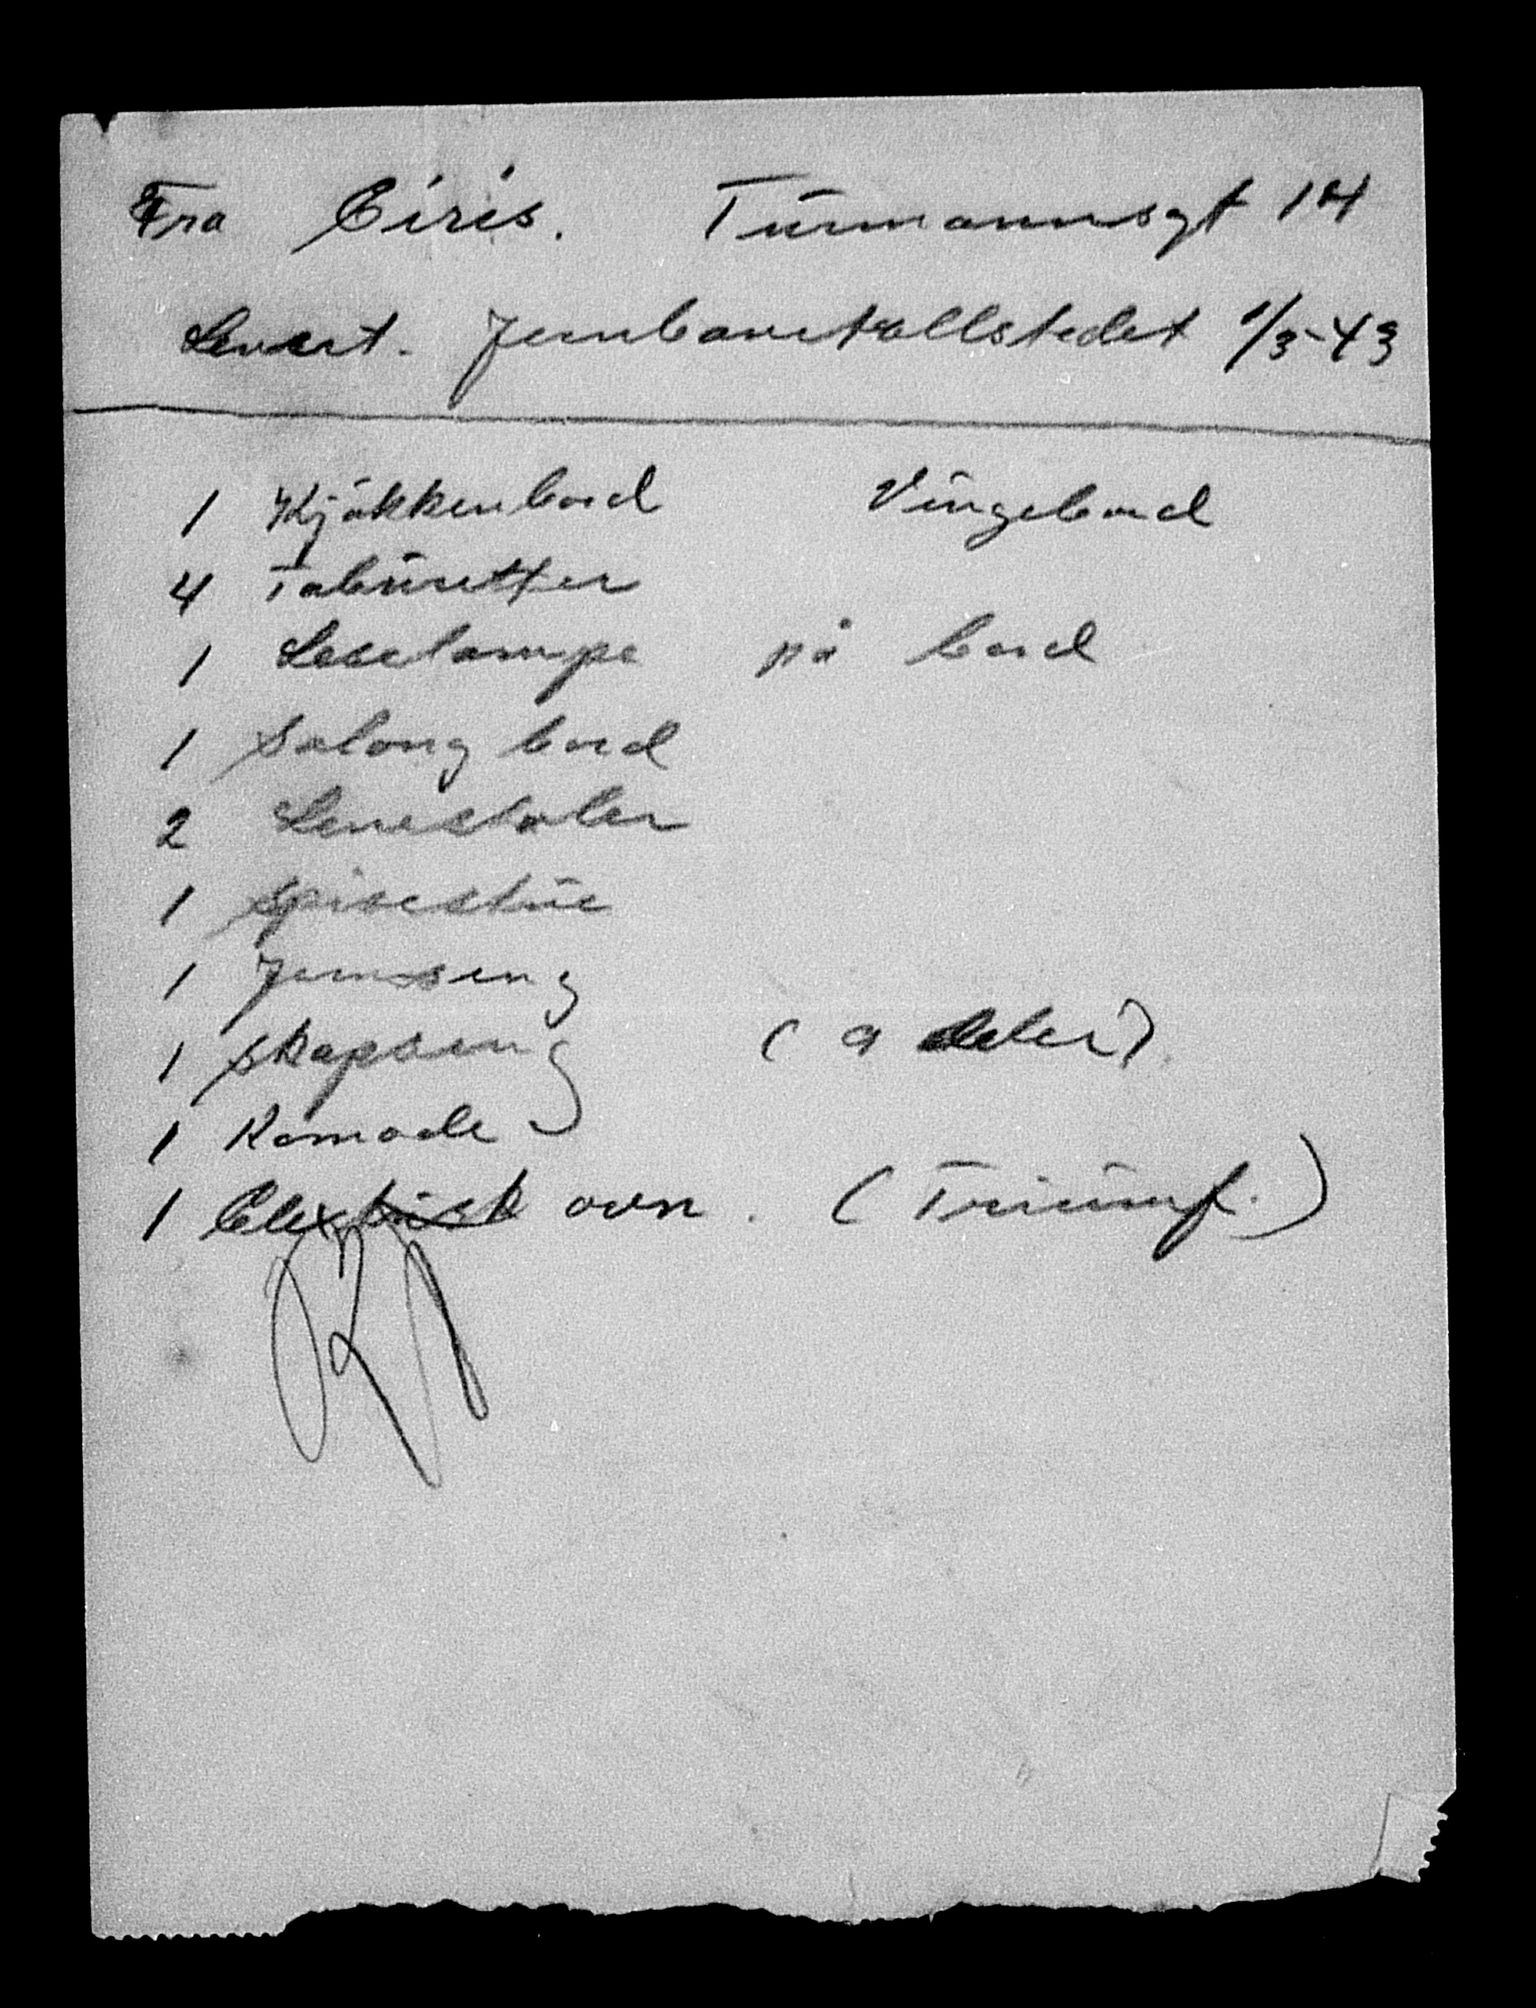 Fra Eiris. Türmannsgt 14
Levert. Jernbanetollstedet 1/3-43
1 Kjökkenbord Vingebord
4 Tabüretter
1 Leselampe på bord
1 Salong bord
2 Lenestoler
1 Spisestüe
1 Jernseng
1 Skapseng (a deler)
1 Komode
1 Elektrisk ovn. (Triümf.)